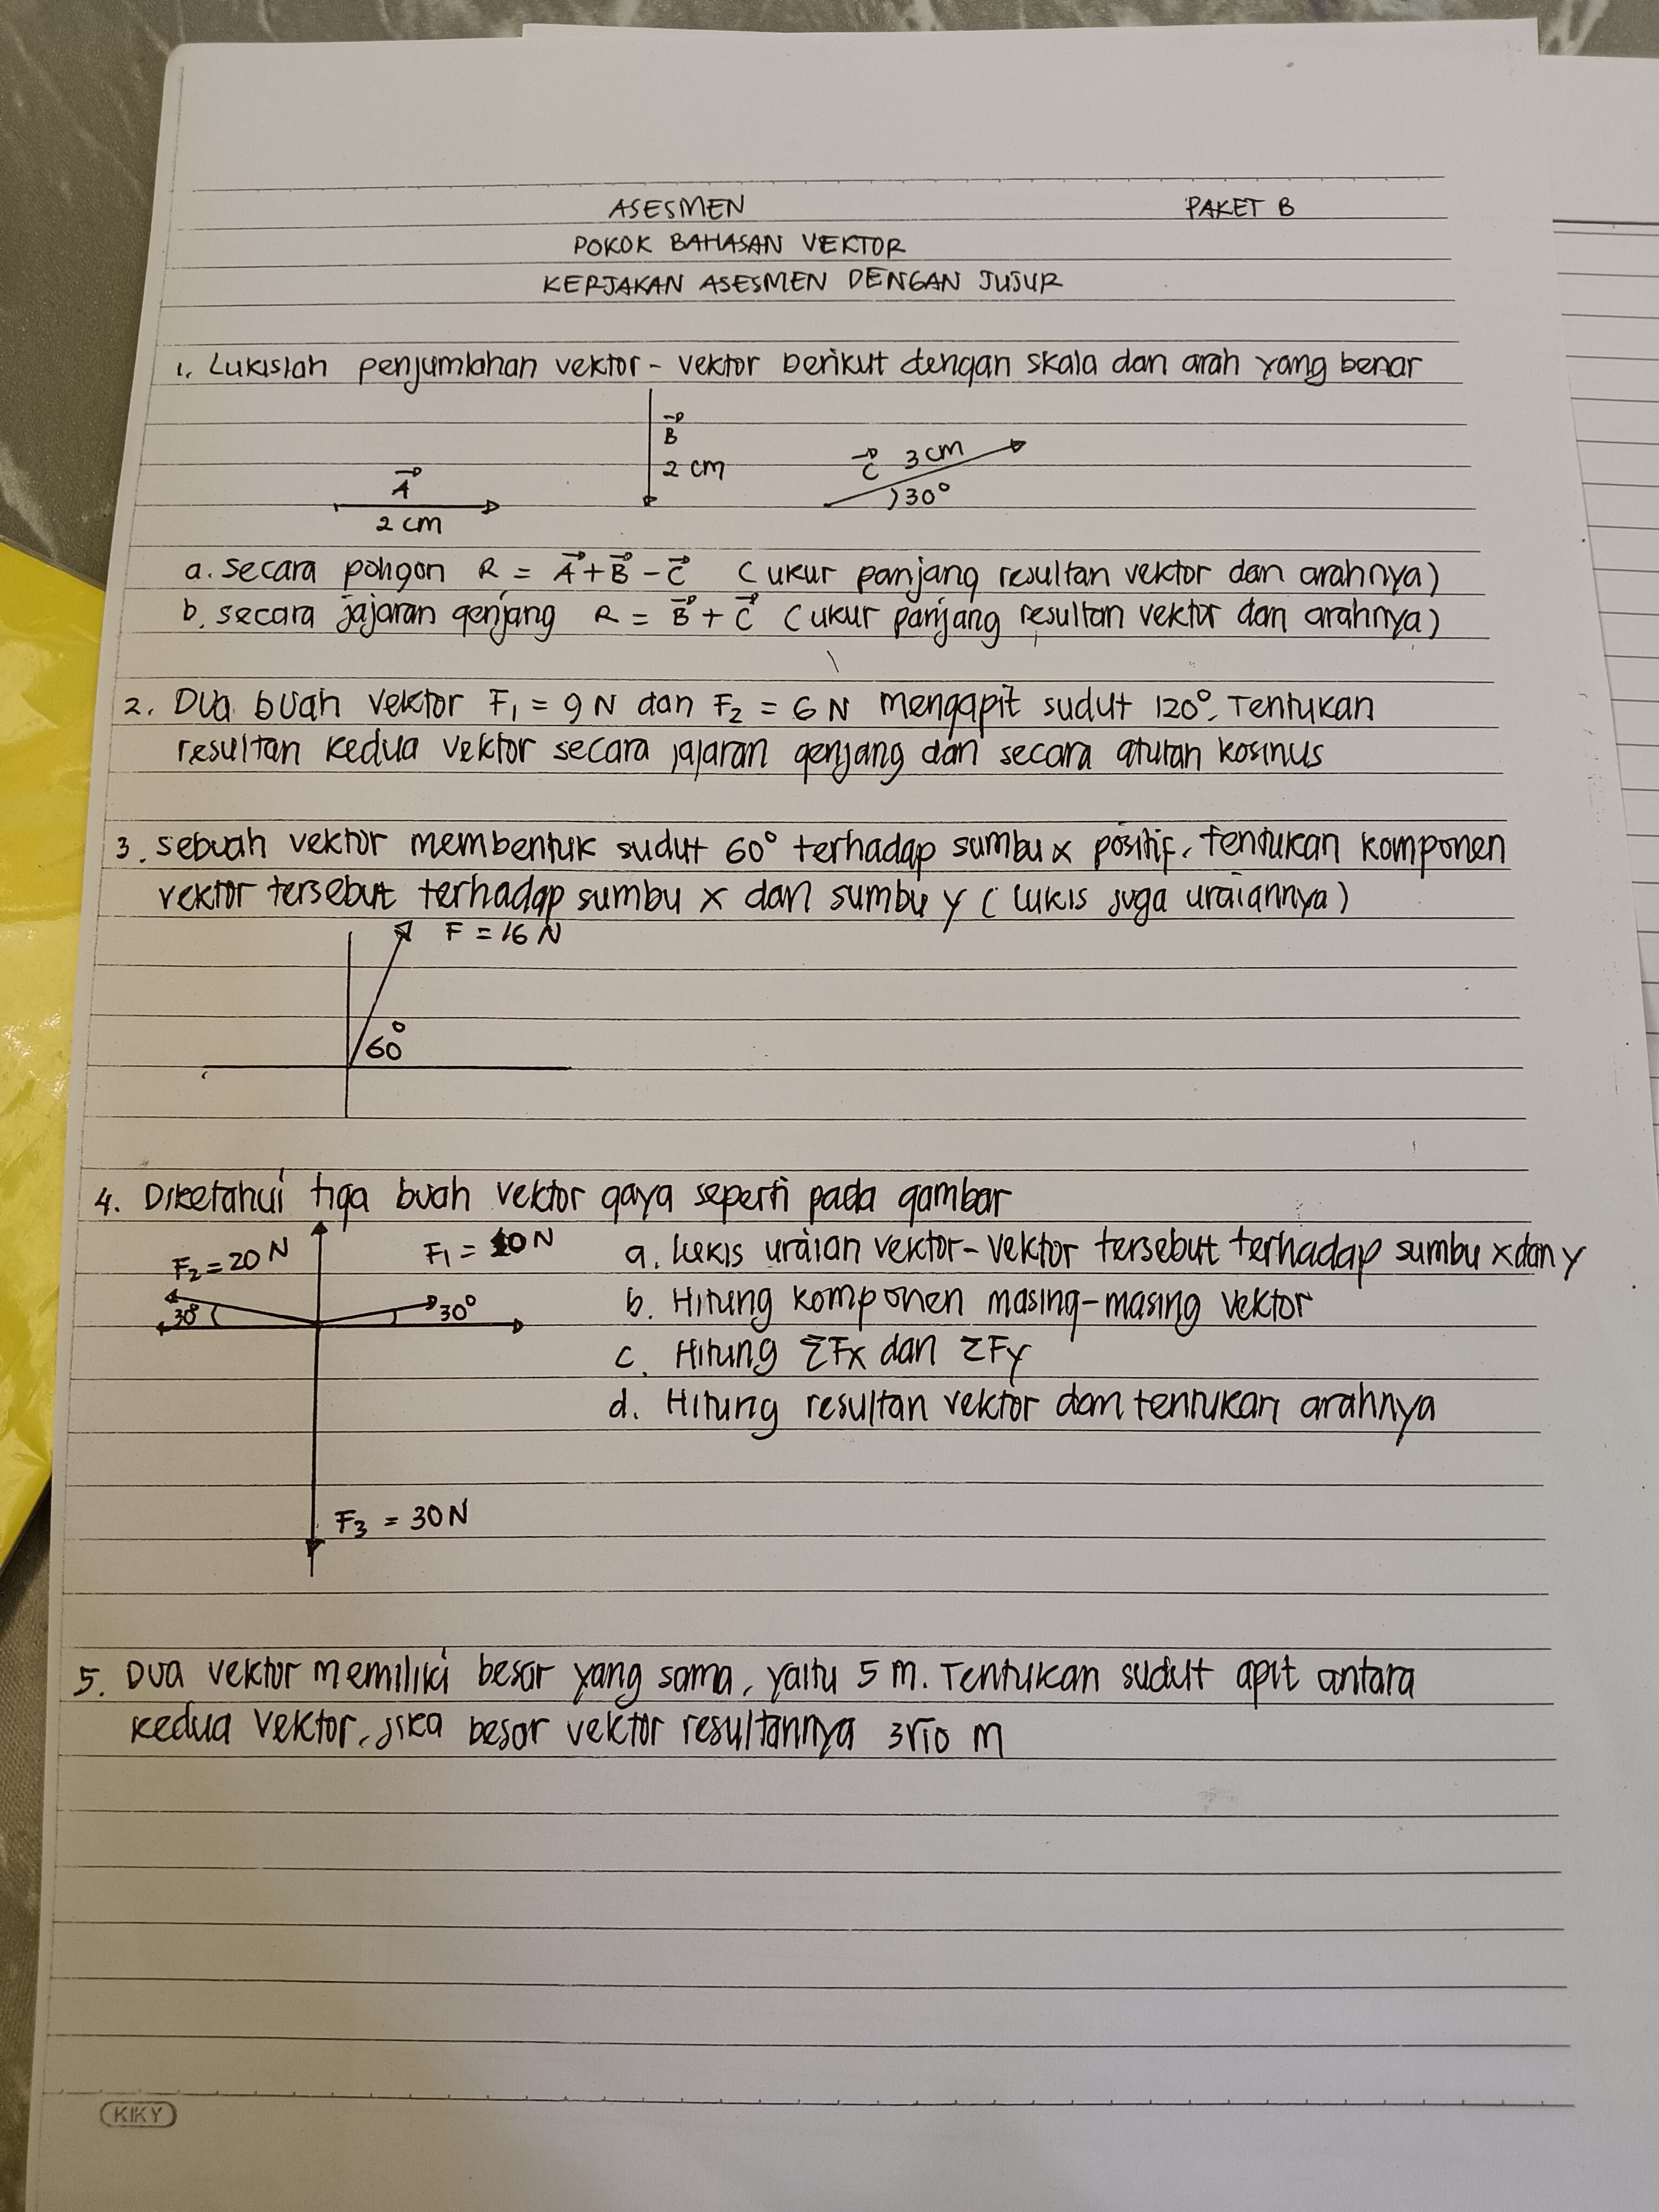 ASESMEN PAKET B
POKOK BAHASAN VEKTOR
KERJAKAN ASESMEN DENGAN JUJUR
1. Lukislah penjumlahan vektor - vektor berikut dengan skala dan arah yang benar
A⃗
2 cm
B⃗
2 cm
C⃗ 3 cm
30°
a. secara poligon R = A⃗ + B⃗ - C⃗ (ukur panjang resultan vektor dan arahnya)
b. secara jajaran genjang R = B⃗ + C⃗ (ukur panjang resultan vektor dan arahnya)
2. Dua buah vektor F₁ = 9 N dan F₂ = 6 N mengapit sudut 120°. Tentukan
resultan kedua vektor secara jajaran genjang dan secara aturan kosinus
3. sebuah vektor membentuk sudut 60° terhadap sumbu x positif. tentukan komponen
vektor tersebut terhadap sumbu x dan sumbu y (lukis juga uraiannya)
F = 16 N
60°
4. Diketahui tiga buah vektor gaya seperti pada gambar
F₂ = 20 N
F₁ = 10 N
30°
30°
F₃ = 30 N
a. lukis uraian vektor-vektor tersebut terhadap sumbu x dan y
b. Hitung komponen masing-masing vektor
c. Hitung ΣFx dan ΣFy
d. Hitung resultan vektor dan tentukan arahnya
5. Dua vektor memiliki besar yang sama, yaitu 5 m. Tentukan sudut apit antara
kedua vektor, jika besar vektor resultannya 3√10 m
KIKY